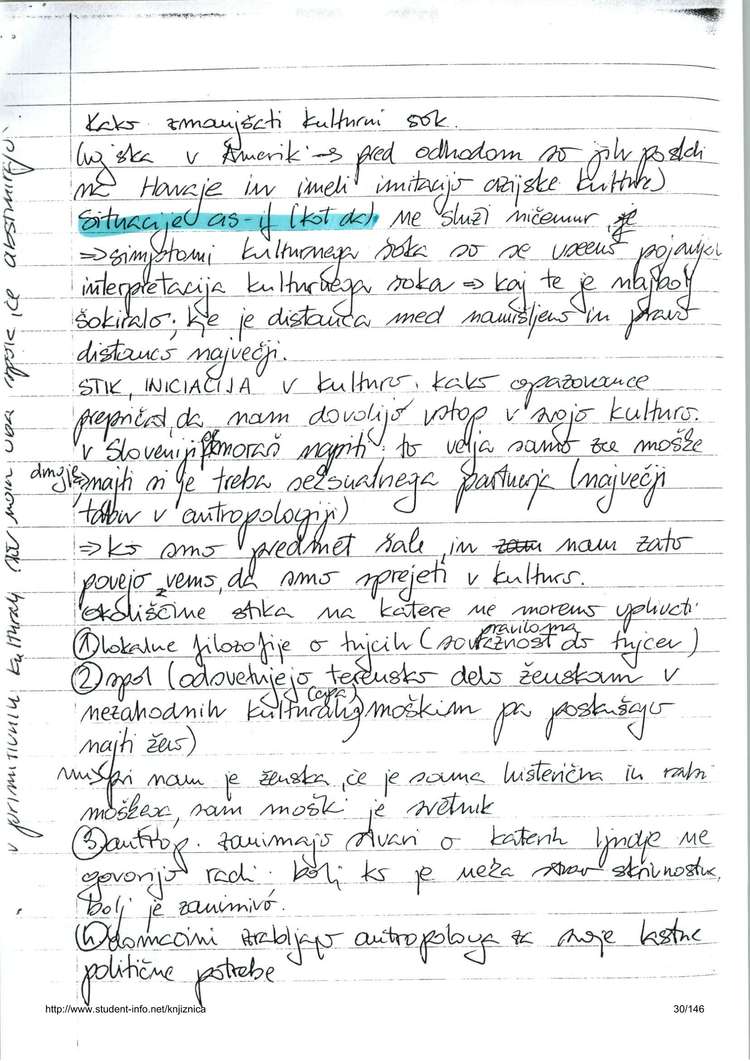 Kako zmanjšati kulturni šok.
vojska v Ameriki → pred odhodom so jih poslali
na Havaje in imeli imitacijo azijske kulture)
Situacije as-if (kot da) ne služi ničemur
⇒ simptomi kulturnega šoka so se vseeno pojavljali
interpretacija kulturnega šoka ⇒ kaj te je najbolj
šokiralo; kje je distanca med namišljeno in pravo
distanco največji.
STIK, INICIACIJA v kulturo. kako opazovance
prepričati, da nam dovolijo vstop v svojo kulturo.
v Sloveniji moraš napiti: to velja samo za moške
drugje: najti si je treba seksualnega partnerja (največji
tabu v antropologiji)
⇒ ko smo predmet šale, in nam zato
povejo, vemo, da smo sprejeti v kulturo.
okoliščine stika na katere ne moremo vplivati:
① lokalne filozofije o tujcih (praviloma sovražnost do tujcev)
② spol (odsvetujejo terensko delo ženskam v
nezahodnih kulturah, moškim pa poskušajo
najti ženo)
pri nam je ženska, če je sama histerična in rabi
moškega, sam moški je svetnik
③ antrop. zanimajo stvari o katerih ljudje ne
govorijo radi. bolj ko je neka stvar skrivnostna,
bolj je zanimivo.
④ domačini zrabljajo antropologa za svoje lastne
politične potrebe
v primitivnih kulturah sta nam oba spola, če abstinirajo.
http://www.student-info.net/knjiznica
30/146